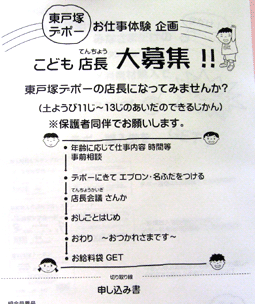 東戸塚
デポー
お仕事体験 企画
てんちょう
こども 店長 大募集 !!
東戸塚デポーの店長になってみませんか?
(土ようび11じ〜13じのあいだのできるじかん)
※保護者同伴でお願いします。
年齢に応じて仕事内容 時間等
事前相談
デポーにきて エプロン・名ふだをつける
てんちょうかいぎ
店長会議 さんか
おしごとはじめ
おわり 〜おつかれさまです〜
お給料袋 GET
切り取り線
申し込み書